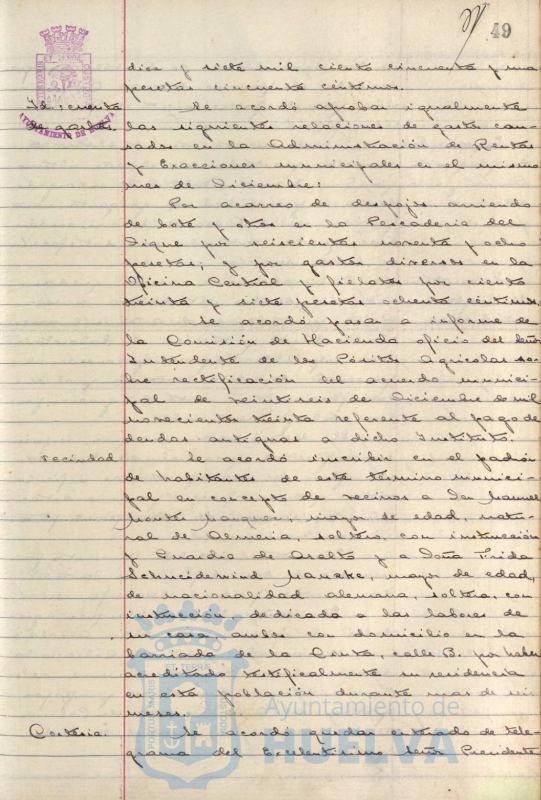 49
diez y siete mil ciento cincuenta y una
pesetas cincuenta céntimos.
Id: cuenta
de gastos.
AYUNTAMIENTO DE HUELVA
Se acordó aprobar igualmente
las siguientes relaciones de gastos cau-
sados en la Administración de Rentas
y Exacciones municipales en el mismo
mes de Diciembre:
Por acarreo de despojos arriendo
de bote y otros en la Pescaderia del
Dique por seiscientas noventa y ocho
pesetas; y por gastos diversos en la
Oficina Central y fielatos por ciento
treinta y siete pesetas ochenta céntimos.
Se acordó pasar a informe de
la Comisión de Hacienda oficio del Señor
Intendente de los Pósitos Agricolas so-
bre rectificación del acuerdo munici-
pal de veintiseis de Diciembre de mil
novecientos treinta referente al pago de
deudas antiguas a dicho Instituto.
Vecindad
Se acordó inscribir en el padrón
de habitantes de este término munici-
pal en concepto de vecinos a Don Manuel
Montes Marquez, mayor de edad, natu-
ral de Almeria, soltero, con instrucción
y Guardia de Asalto y a Doña Frida
Schneiderwind, mayor de edad,
de nacionalidad alemana, soltera, con
instrucción dedicada a las labores de
su casa ambos con domicilio en la
barriada de la Cinta, calle B. por haber
acreditado testificalmente su residencia
en esta población durante mas de seis
meses.
Cortesia.
Se acordó quedar enterado de tele-
grama del Excelentisimo Señor Presidente
Ayuntamiento de
HUELVA